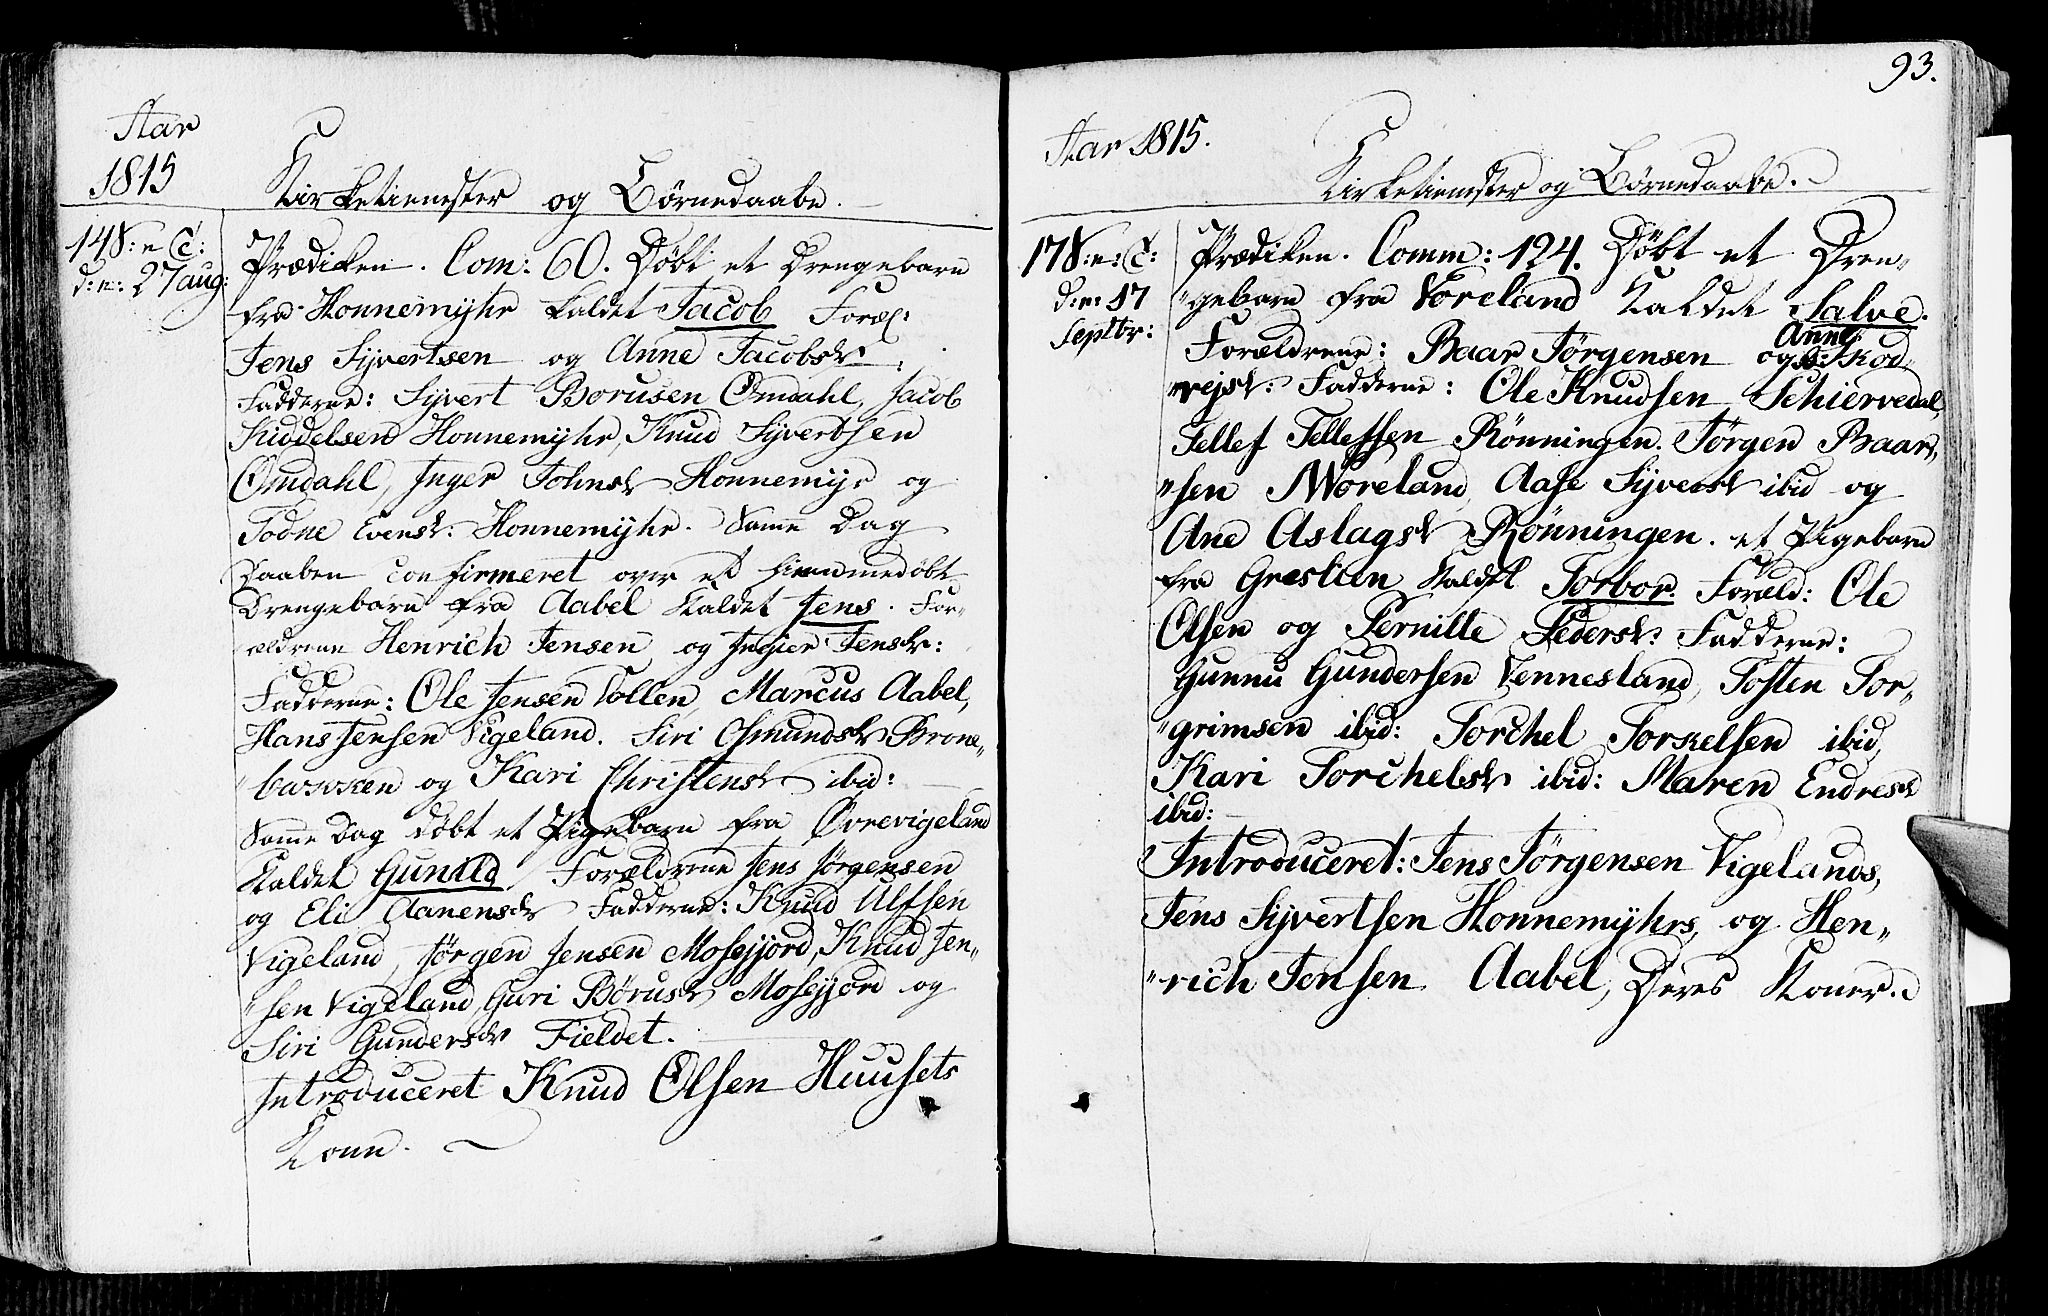 Aar
1815
Kirketienester og Börnedaabe.
14 S: e T:
d: n: 27 aug:
Prædiken. Com: 60. Döbt et Drengebarn
fra Honnemyhr kaldet Jacob Foræl:
Jens Sijvertsen og Anne Jacobsdr:
Fadderne: Sijvert Borusen Omdahl, Jacob
Kiddelsen Honnemijhr, Knud Sijvertsen
Omdahl, Inger Johnsdr Honnemijr og
Todne Evensdr: Honnemijhr. Samme Dag
Daaben confirmeret over et hiemmedöbt
Drengebarn fra Aabel kaldet Jens. For-
ældrene Henrich Jensen og Jensdr:
Fadderne: Ole Jensen Vollen, Marcus Aabel,
Hans Jensen Vigeland. Siri Osmundsdr Brone-
backen og Kari Christensdr ibid:
Samme Dag döbt et Pigebarn fra Øvrevigeland
kaldet Gunild Forældrene Jens Jörgensen
og Eli Aanensdr Fadderne: Knud Ulfsen
Vigeland, Jörgen Jensen Mosejord, Knud Jen„
„sen Vigeland, Guri Börusdr Mosejord og
Siri Gundersdr Fieldet.
Introduceret Knud Olsen Huusets
Konn.
93.
Aar 1815.
Kirketienester og Börnedaabe.
17 S: e: T:
d: n: 17
Septbr:
Prædiken. Comm: 124. Döbt et Dren„
„gebarn fra Voreland kaldet Salve.
Forældrene: Baar Jörgensen og Anne Kod„
„vejsdr: Fadderne: Ole Knudsen Schiervedal,
Tellef Tellefsen Rönningen. Jörgen Baar„
„sen Moreland, Aase Sijversdr ibid og
Ane Aslagsdr Rönningen. et Pigebarn
fra Grestien kaldet Torbor. Foræld: Ole
Olsen og Pernille Pedersdr: Fadderne:
Gunnu Gundersen Vennesland, Tosten Tor„
„grimsen ibid: Torchel Torkelsen ibid,
Kari Torchelsdr ibid: Maren Endresdr
ibid:
Introduceret: Jens Jörgensen Vigelands,
Jens Sijvertsen Honnemijhrs, og Hen„
„rich Jensen Aabel, Deres Koner.